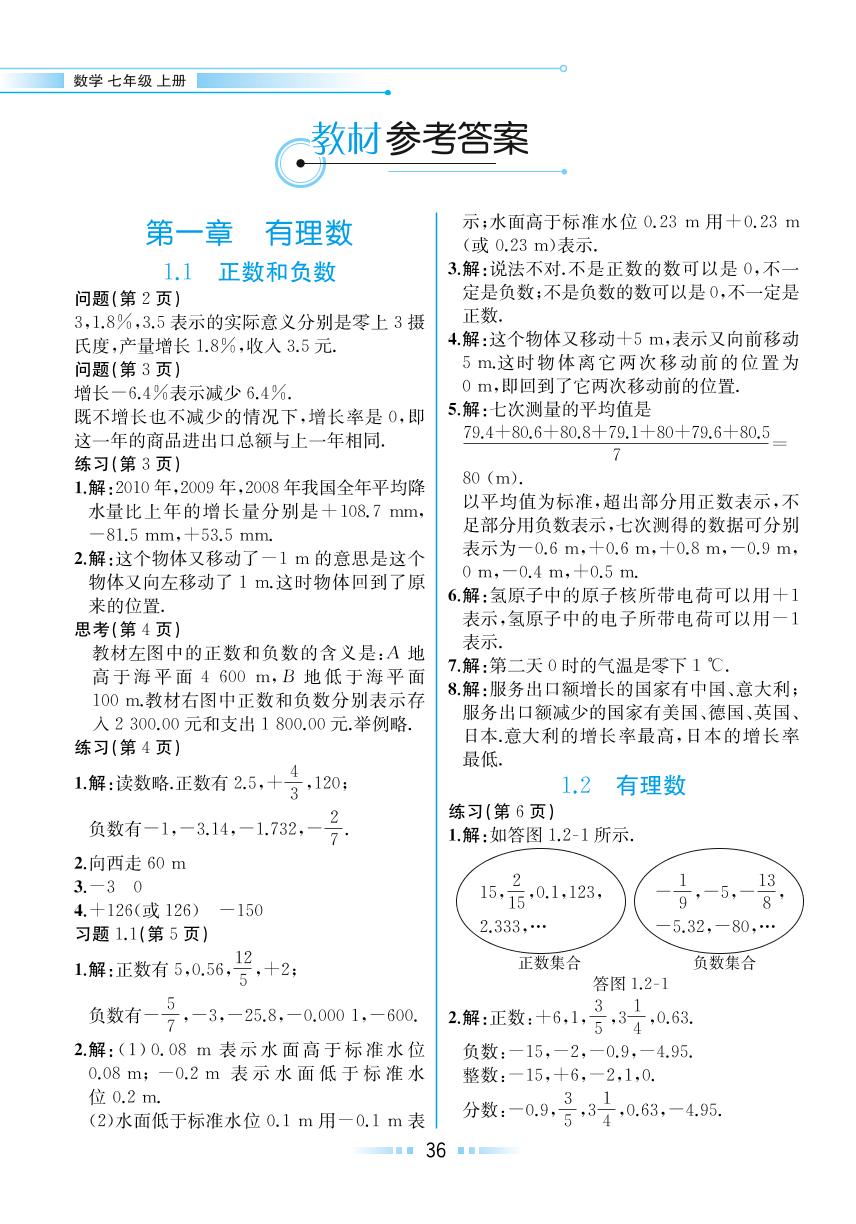 数学 七年级 上册
教材参考答案
第一章 有理数
1.1 正数和负数
问题(第 2 页)
3,1.8%,3.5 表示的实际意义分别是零上 3 摄
氏度,产量增长 1.8%,收入 3.5 元.
问题(第 3 页)
增长-6.4%表示减少 6.4%.
既不增长也不减少的情况下,增长率是 0,即
这一年的商品进出口总额与上一年相同.
练习(第 3 页)
1.解:2010 年,2009 年,2008 年我国全年平均降
水量比上年的增长量分别是+108.7 mm,
-81.5 mm,+53.5 mm.
2.解:这个物体又移动了-1 m 的意思是这个
物体又向左移动了 1 m.这时物体回到了原
来的位置.
思考(第 4 页)
教材左图中的正数和负数的含义是:A 地
高于海平面 4 600 m,B 地低于海平面
100 m.教材右图中正数和负数分别表示存
入 2 300.00 元和支出 1 800.00 元.举例略.
练习(第 4 页)
1.解:读数略.正数有 2.5,+4/3,120;
负数有-1,-3.14,-1.732,-2/7.
2.向西走 60 m
3.-3 0
4.+126(或 126) -150
习题 1.1(第 5 页)
1.解:正数有 5,0.56,12/5,+2;
负数有-5/7,-3,-25.8,-0.000 1,-600.
2.解:(1)0.08 m 表示水面高于标准水位
0.08 m; -0.2 m 表示水面低于标准水
位 0.2 m.
(2)水面低于标准水位 0.1 m 用-0.1 m 表
示;水面高于标准水位 0.23 m 用+0.23 m
(或 0.23 m)表示.
3.解:说法不对.不是正数的数可以是 0,不一
定是负数;不是负数的数可以是 0,不一定是
正数.
4.解:这个物体又移动+5 m,表示又向前移动
5 m.这时物体离它两次移动前的位置为
0 m,即回到了它两次移动前的位置.
5.解:七次测量的平均值是
79.4+80.6+80.8+79.1+80+79.6+80.5
7
=
80 (m).
以平均值为标准,超出部分用正数表示,不
足部分用负数表示,七次测得的数据可分别
表示为-0.6 m,+0.6 m,+0.8 m,-0.9 m,
0 m,-0.4 m,+0.5 m.
6.解:氢原子中的原子核所带电荷可以用+1
表示,氢原子中的电子所带电荷可以用-1
表示.
7.解:第二天 0 时的气温是零下 1 ℃.
8.解:服务出口额增长的国家有中国、意大利;
服务出口额减少的国家有美国、德国、英国、
日本.意大利的增长率最高,日本的增长率
最低.
1.2 有理数
练习(第 6 页)
1.解:如答图 1.2-1 所示.
15,2/15,0.1,123,
2.333,…
正数集合
-1/9,-5,-13/8,
-5.32,-80,…
负数集合
答图 1.2-1
2.解:正数:+6,1,3/5,3 1/4,0.63.
负数:-15,-2,-0.9,-4.95.
整数:-15,+6,-2,1,0.
分数:-0.9,3/5,3 1/4,0.63,-4.95.
36